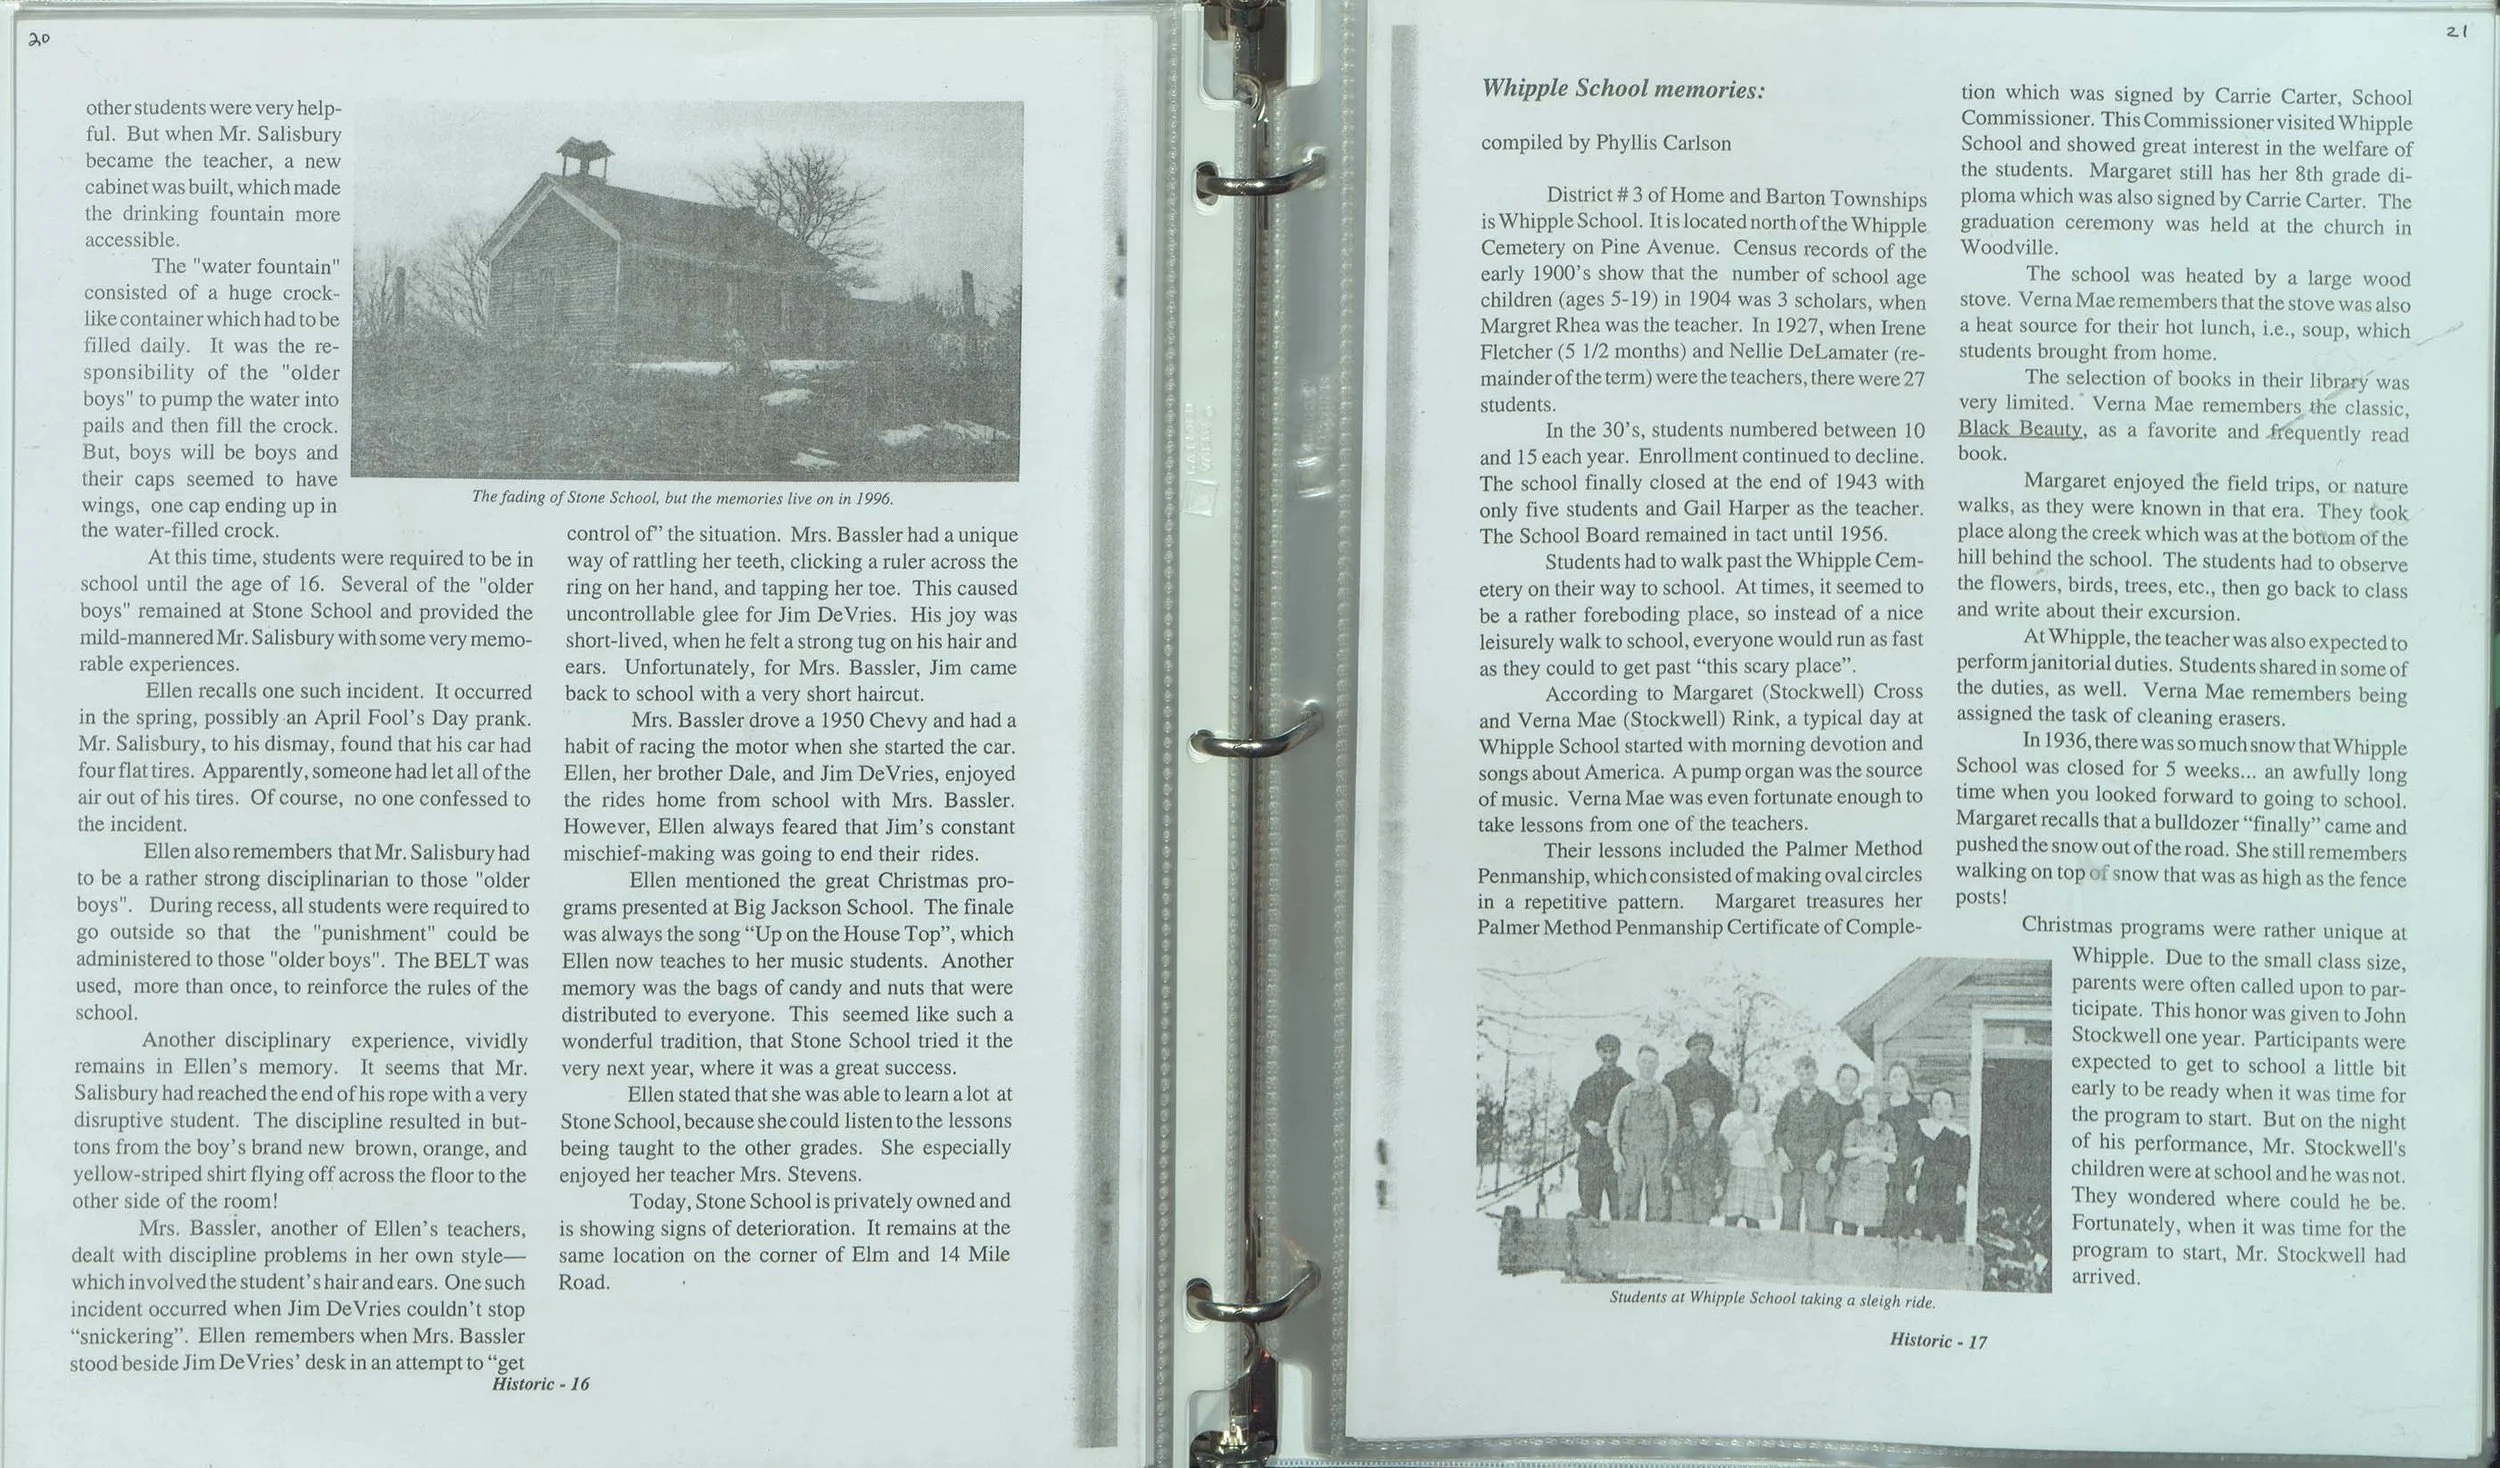 20
other students were very help-
ful. But when Mr. Salisbury
became the teacher, a new
cabinet was built, which made
the drinking fountain more
accessible.
The "water fountain"
consisted of a huge crock-
like container which had to be
filled daily. It was the re-
sponsibility of the "older
boys" to pump the water into
pails and then fill the crock.
But, boys will be boys and
their caps seemed to have
wings, one cap ending up in
the water-filled crock.
At this time, students were required to be in
school until the age of 16. Several of the "older
boys" remained at Stone School and provided the
mild-mannered Mr. Salisbury with some very memo-
rable experiences.
Ellen recalls one such incident. It occurred
in the spring, possibly an April Fool's Day prank.
Mr. Salisbury, to his dismay, found that his car had
four flat tires. Apparently, someone had let all of the
air out of his tires. Of course, no one confessed to
the incident.
Ellen also remembers that Mr. Salisbury had
to be a rather strong disciplinarian to those "older
boys". During recess, all students were required to
go outside so that the "punishment" could be
administered to those "older boys". The BELT was
used, more than once, to reinforce the rules of the
school.
Another disciplinary experience, vividly
remains in Ellen's memory. It seems that Mr.
Salisbury had reached the end of his rope with a very
disruptive student. The discipline resulted in but-
tons from the boy's brand new brown, orange, and
yellow-striped shirt flying off across the floor to the
other side of the room!
Mrs. Bassler, another of Ellen's teachers,
dealt with discipline problems in her own style—
which involved the student's hair and ears. One such
incident occurred when Jim DeVries couldn't stop
“snickering”. Ellen remembers when Mrs. Bassler
stood beside Jim DeVries' desk in an attempt to “get
The fading of Stone School, but the memories live on in 1996.
control of” the situation. Mrs. Bassler had a unique
way of rattling her teeth, clicking a ruler across the
ring on her hand, and tapping her toe. This caused
uncontrollable glee for Jim DeVries. His joy was
short-lived, when he felt a strong tug on his hair and
ears. Unfortunately, for Mrs. Bassler, Jim came
back to school with a very short haircut.
Mrs. Bassler drove a 1950 Chevy and had a
habit of racing the motor when she started the car.
Ellen, her brother Dale, and Jim DeVries, enjoyed
the rides home from school with Mrs. Bassler.
However, Ellen always feared that Jim's constant
mischief-making was going to end their rides.
Ellen mentioned the great Christmas pro-
grams presented at Big Jackson School. The finale
was always the song “Up on the House Top”, which
Ellen now teaches to her music students. Another
memory was the bags of candy and nuts that were
distributed to everyone. This seemed like such a
wonderful tradition, that Stone School tried it the
very next year, where it was a great success.
Ellen stated that she was able to learn a lot at
Stone School, because she could listen to the lessons
being taught to the other grades. She especially
enjoyed her teacher Mrs. Stevens.
Today, Stone School is privately owned and
is showing signs of deterioration. It remains at the
same location on the corner of Elm and 14 Mile
Road.
Historic - 16
21
Whipple School memories:
compiled by Phyllis Carlson
District # 3 of Home and Barton Townships
is Whipple School. It is located north of the Whipple
Cemetery on Pine Avenue. Census records of the
early 1900's show that the number of school age
children (ages 5-19) in 1904 was 3 scholars, when
Margret Rhea was the teacher. In 1927, when Irene
Fletcher (5 1/2 months) and Nellie DeLamater (re-
mainder of the term) were the teachers, there were 27
students.
In the 30's, students numbered between 10
and 15 each year. Enrollment continued to decline.
The school finally closed at the end of 1943 with
only five students and Gail Harper as the teacher.
The School Board remained in tact until 1956.
Students had to walk past the Whipple Cem-
etery on their way to school. At times, it seemed to
be a rather foreboding place, so instead of a nice
leisurely walk to school, everyone would run as fast
as they could to get past “this scary place”.
According to Margaret (Stockwell) Cross
and Verna Mae (Stockwell) Rink, a typical day at
Whipple School started with morning devotion and
songs about America. A pump organ was the source
of music. Verna Mae was even fortunate enough to
take lessons from one of the teachers.
Their lessons included the Palmer Method
Penmanship, which consisted of making oval circles
in a repetitive pattern. Margaret treasures her
Palmer Method Penmanship Certificate of Comple-
tion which was signed by Carrie Carter, School
Commissioner. This Commissioner visited Whipple
School and showed great interest in the welfare of
the students. Margaret still has her 8th grade di-
ploma which was also signed by Carrie Carter. The
graduation ceremony was held at the church in
Woodville.
The school was heated by a large wood
stove. Verna Mae remembers that the stove was also
a heat source for their hot lunch, i.e., soup, which
students brought from home.
The selection of books in their library was
very limited. Verna Mae remembers the classic,
Black Beauty, as a favorite and frequently read
book.
Margaret enjoyed the field trips, or nature
walks, as they were known in that era. They took
place along the creek which was at the bottom of the
hill behind the school. The students had to observe
the flowers, birds, trees, etc., then go back to class
and write about their excursion.
At Whipple, the teacher was also expected to
perform janitorial duties. Students shared in some of
the duties, as well. Verna Mae remembers being
assigned the task of cleaning erasers.
In 1936, there was so much snow that Whipple
School was closed for 5 weeks... an awfully long
time when you looked forward to going to school.
Margaret recalls that a bulldozer “finally” came and
pushed the snow out of the road. She still remembers
walking on top of snow that was as high as the fence
posts!
Christmas programs were rather unique at
Whipple. Due to the small class size,
parents were often called upon to par-
ticipate. This honor was given to John
Stockwell one year. Participants were
expected to get to school a little bit
early to be ready when it was time for
the program to start. But on the night
of his performance, Mr. Stockwell's
children were at school and he was not.
They wondered where could he be.
Fortunately, when it was time for the
program to start, Mr. Stockwell had
arrived.
Students at Whipple School taking a sleigh ride.
Historic - 17